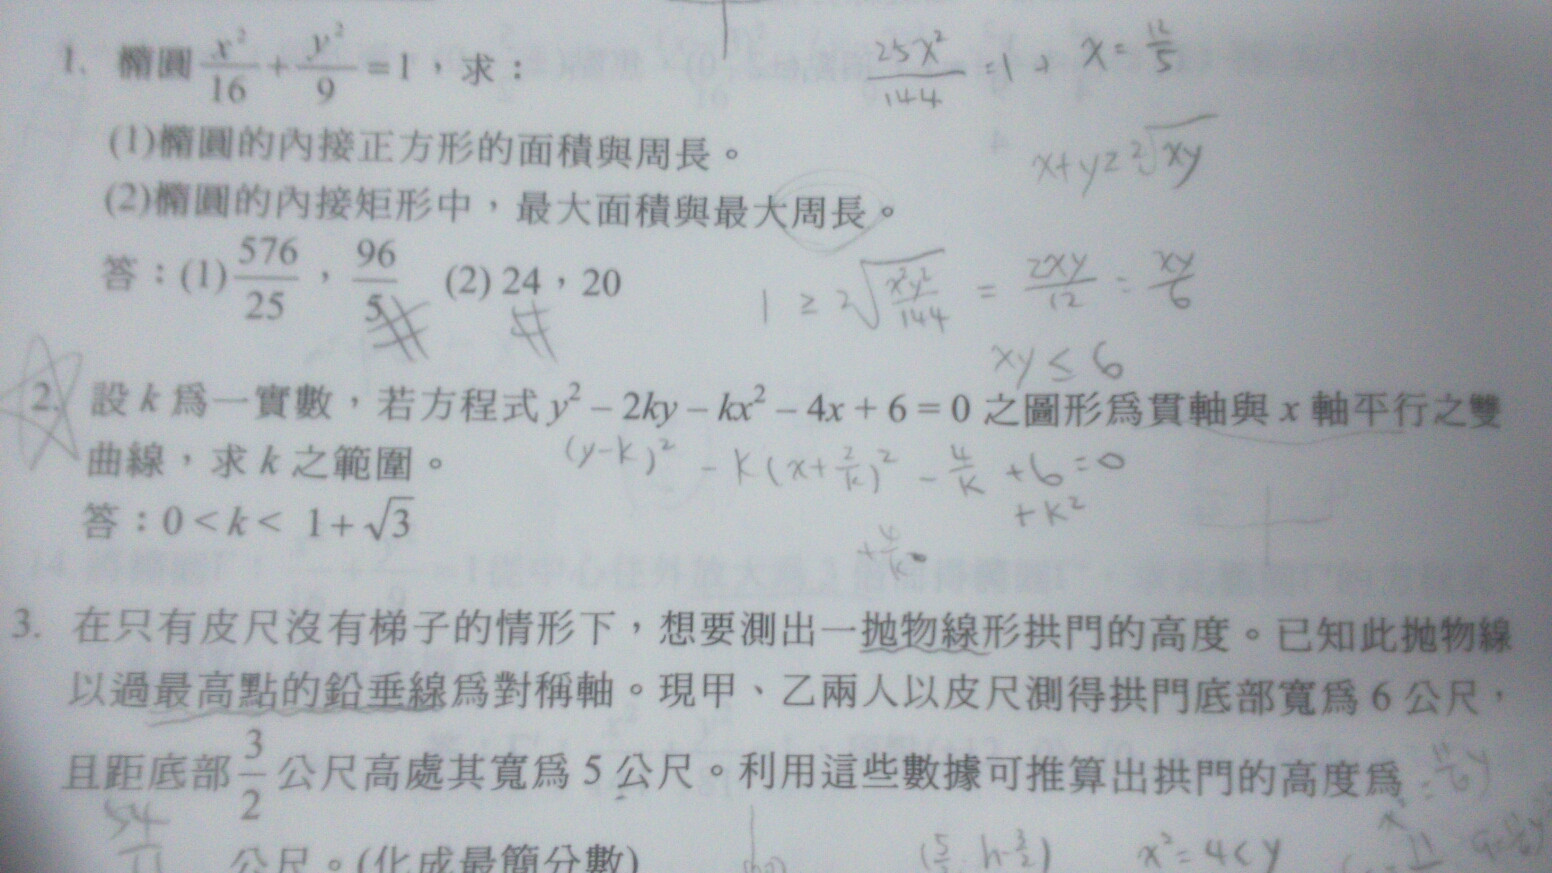 1. 橢圓 x²/16 + y²/9 = 1，求： 25x²/144 = 1， x = 12/5
(1)橢圓的內接正方形的面積與周長。
x+y≥2√xy
(2)橢圓的內接矩形中，最大面積與最大周長。
答：(1) 576/25，96/5 (2) 24，20
1 ≥ 2√(x²y²/144) = 2xy/12 = xy/6
xy ≤ 6
2. 設 k 為一實數，若方程式 y² − 2ky − kx² − 4x + 6 = 0 之圖形為貫軸與 x 軸平行之雙
曲線，求 k 之範圍。
(y-k)² - k(x+2/k)² - 4/k +6 = 0
+k²
答：0 < k < 1+√3
+4/k
3. 在只有皮尺沒有梯子的情形下，想要測出一拋物線形拱門的高度。已知此拋物線
以過最高點的鉛垂線為對稱軸。現甲、乙兩人以皮尺測得拱門底部寬為 6 公尺，
且距底部 3/2 公尺高處其寬為 5 公尺。利用這些數據可推算出拱門的高度為
54/11 公尺。(化成最簡分數)
x² = 4cy